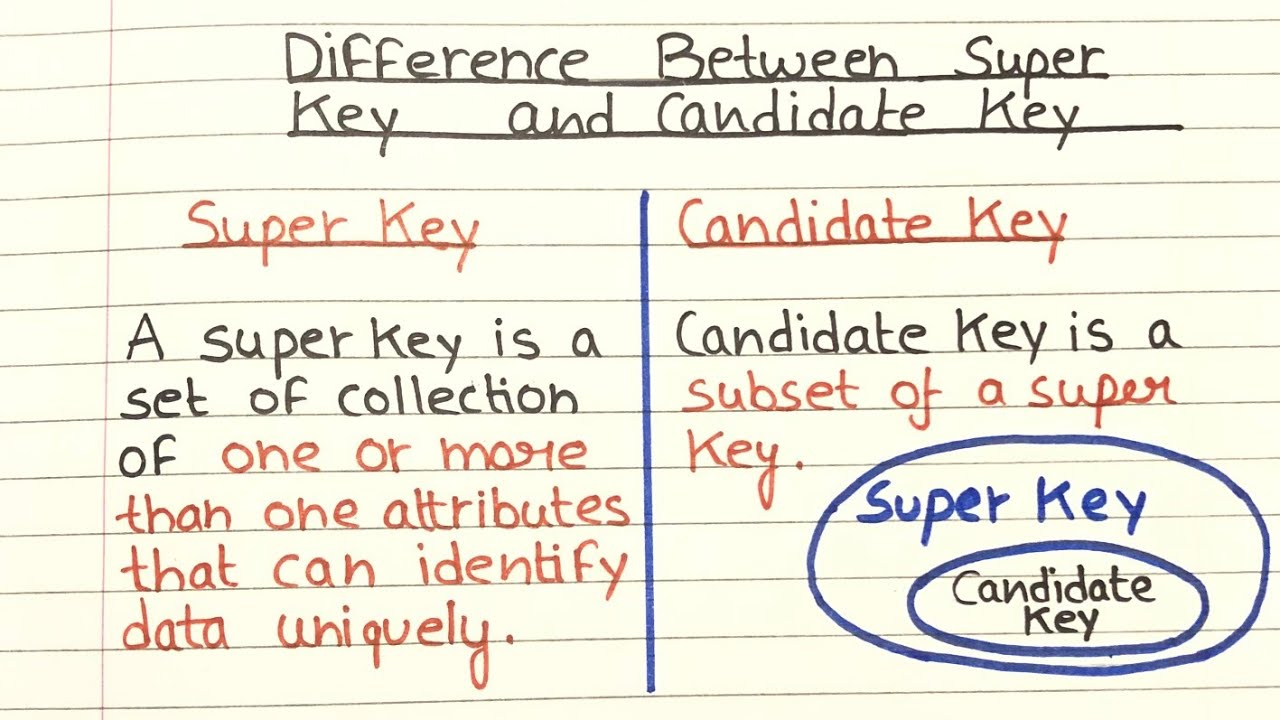 Difference Between Super
Key and Candidate Key
Super Key
A super key is a
set of collection
of one or more
than one attributes
that can identify
data uniquely.
Candidate Key
Candidate Key is a
subset of a super
Key.
Super Key
Candidate
Key